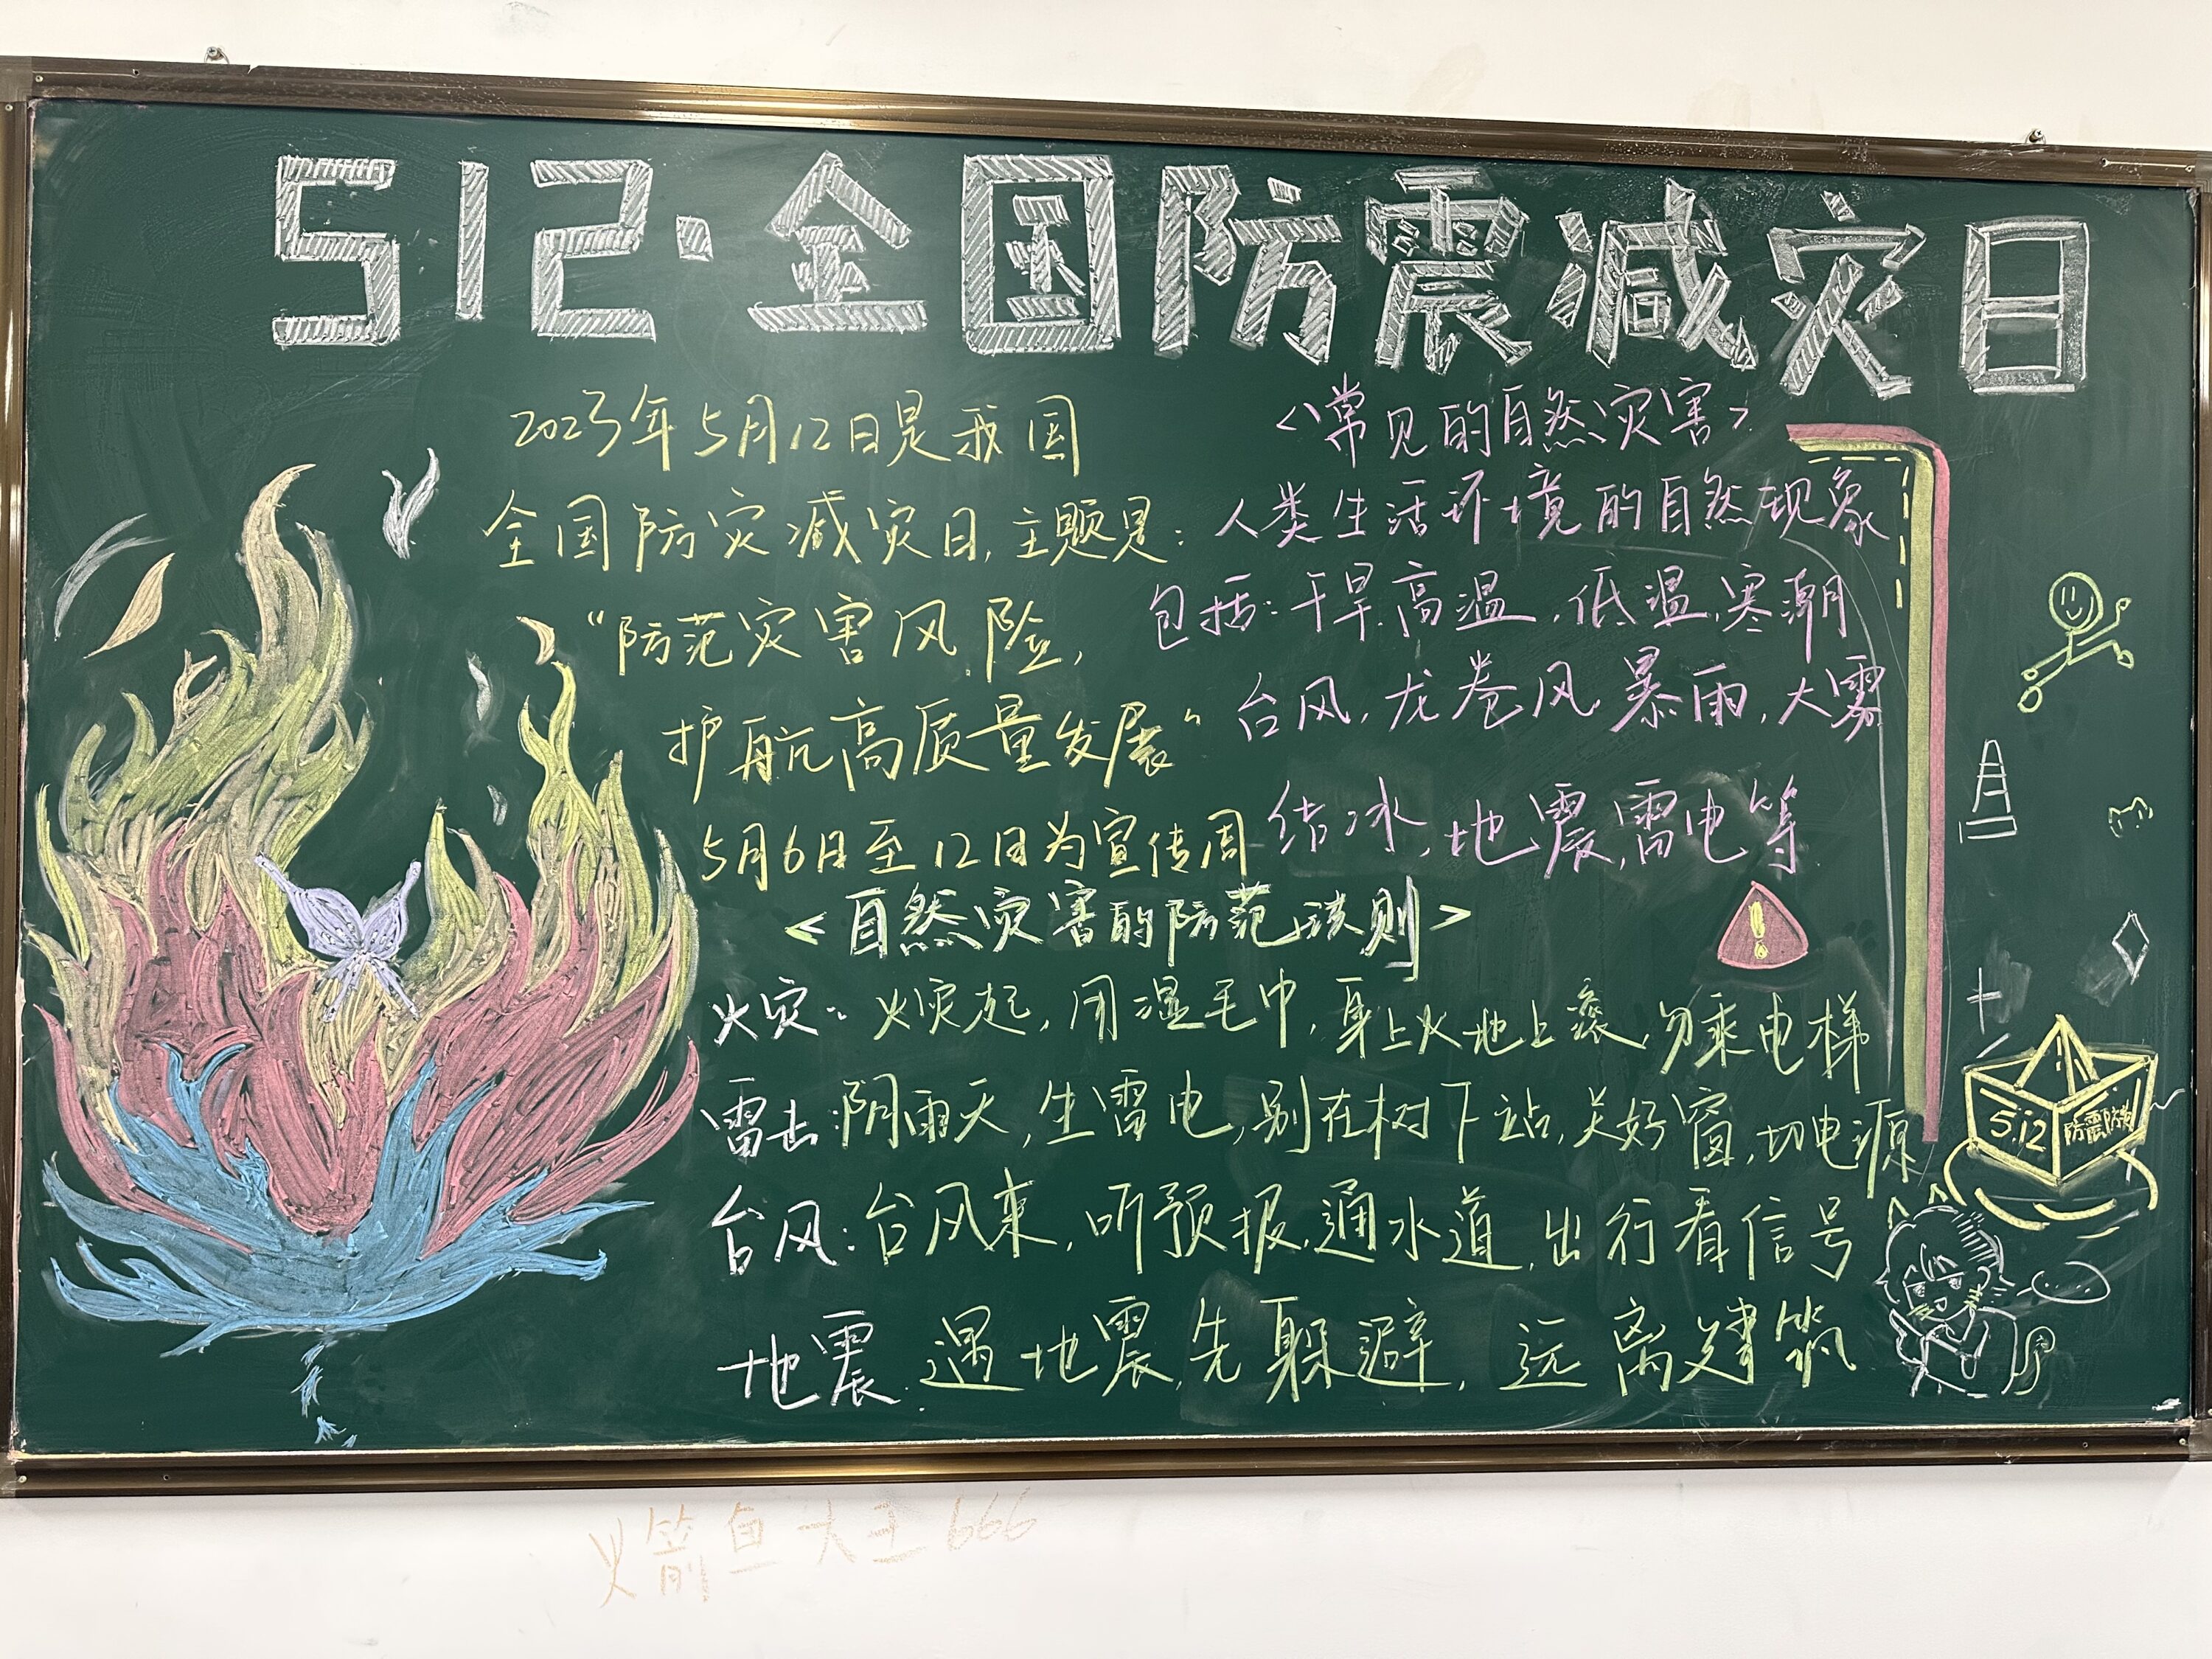 512·全国防震减灾日
2023年5月12日是我国
全国防灾减灾日,主题是:
"防范灾害风险,
护航高质量发展"
5月6日至12日为宣传周
<常见的自然灾害>
人类生活环境的自然现象
包括:干旱.高温,低温,寒潮
台风,龙卷风,暴雨,大雾
结冰,地震,雷电等
<自然灾害的防范 则>
火灾: 火灾起,用湿毛巾,身上火地上滚,勿乘电梯
雷击:阴雨天,生雷电,别在树下站,关好窗,切电源
台风:台风来,听预报,通水道,出行看信号
地震.遇地震,先躲避,远离建筑
5.12
防震防
火箭鱼大王666